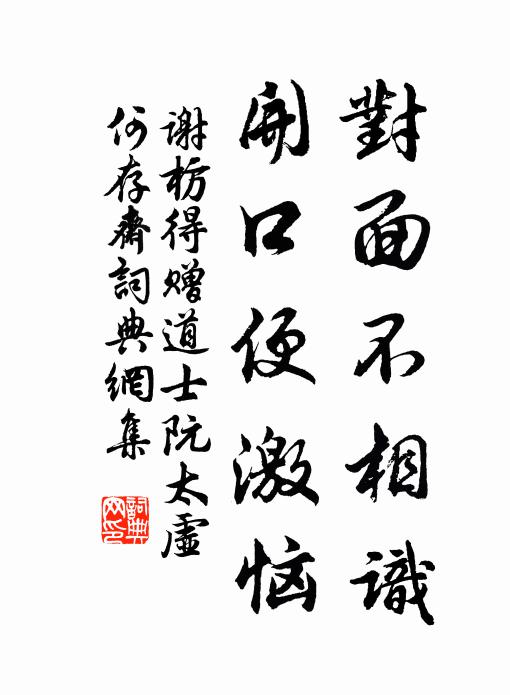 對面不相識
開口便激恼
谢枋得赠道士阮太虛
何存齋詞典網集
詞典網印